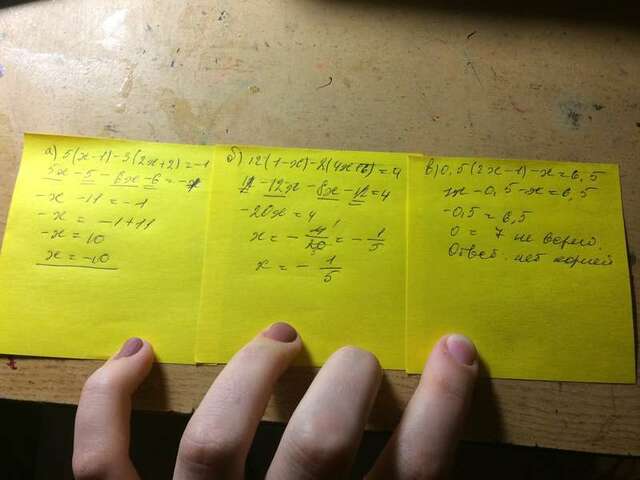 а) 5(x-1)-3(2x+2)=-1
5x-5-6x-6=-1
-x-11=-1
-x=-1+11
-x=10
x=-10
б) 12(1-x)-2(4x+6)=4
12-12x-8x-12=4
-20x=4
x=-4/20=-1/5
x=-1/5
в) 0,5(2x-1)-x=6,5
x-0,5-x=6,5
-0,5=6,5
0=7 не верно.
Ответ: нет корней